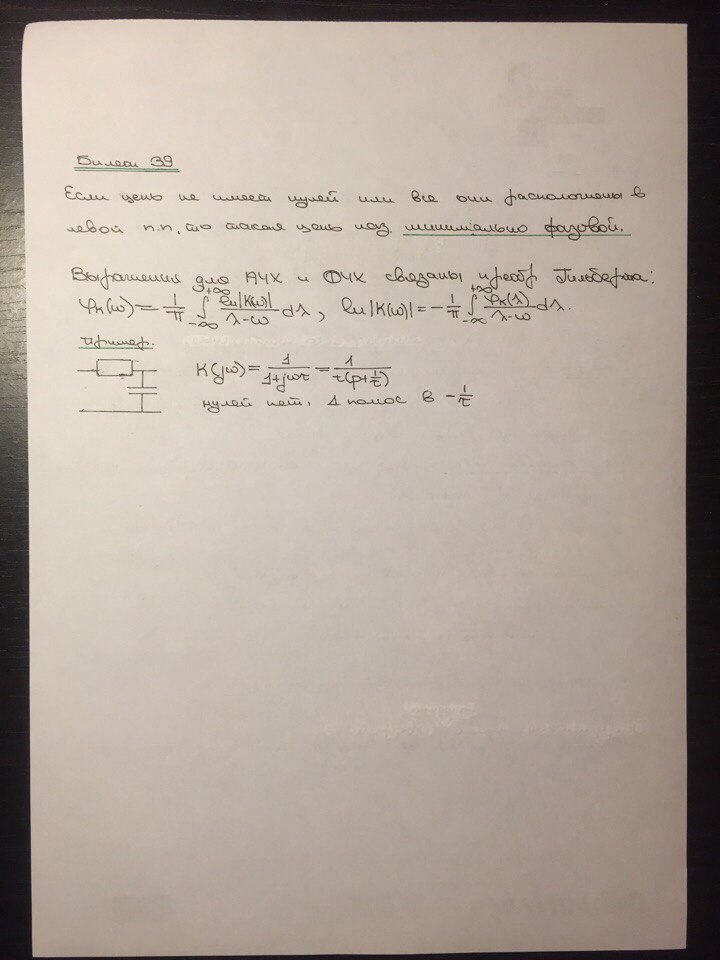 Билет 39
Если цепь не имеет нулей или все они расположены в
левой п.п, то такая цепь наз минимально фазовой.
Выражения для АЧХ и ФЧХ связаны преобр Гильберта:
φ_K(ω) = 1/π ∫_{-∞}^{+∞} ln|K(ω)|/(λ-ω) dλ, ln|K(ω)| = -1/π ∫_{-∞}^{+∞} φ_K(λ)/(λ-ω) dλ.
Пример.
K(jω) = 1/(1+jωτ) = 1/(τ(p+1/τ))
нулей нет, 1 полюс в -1/τ